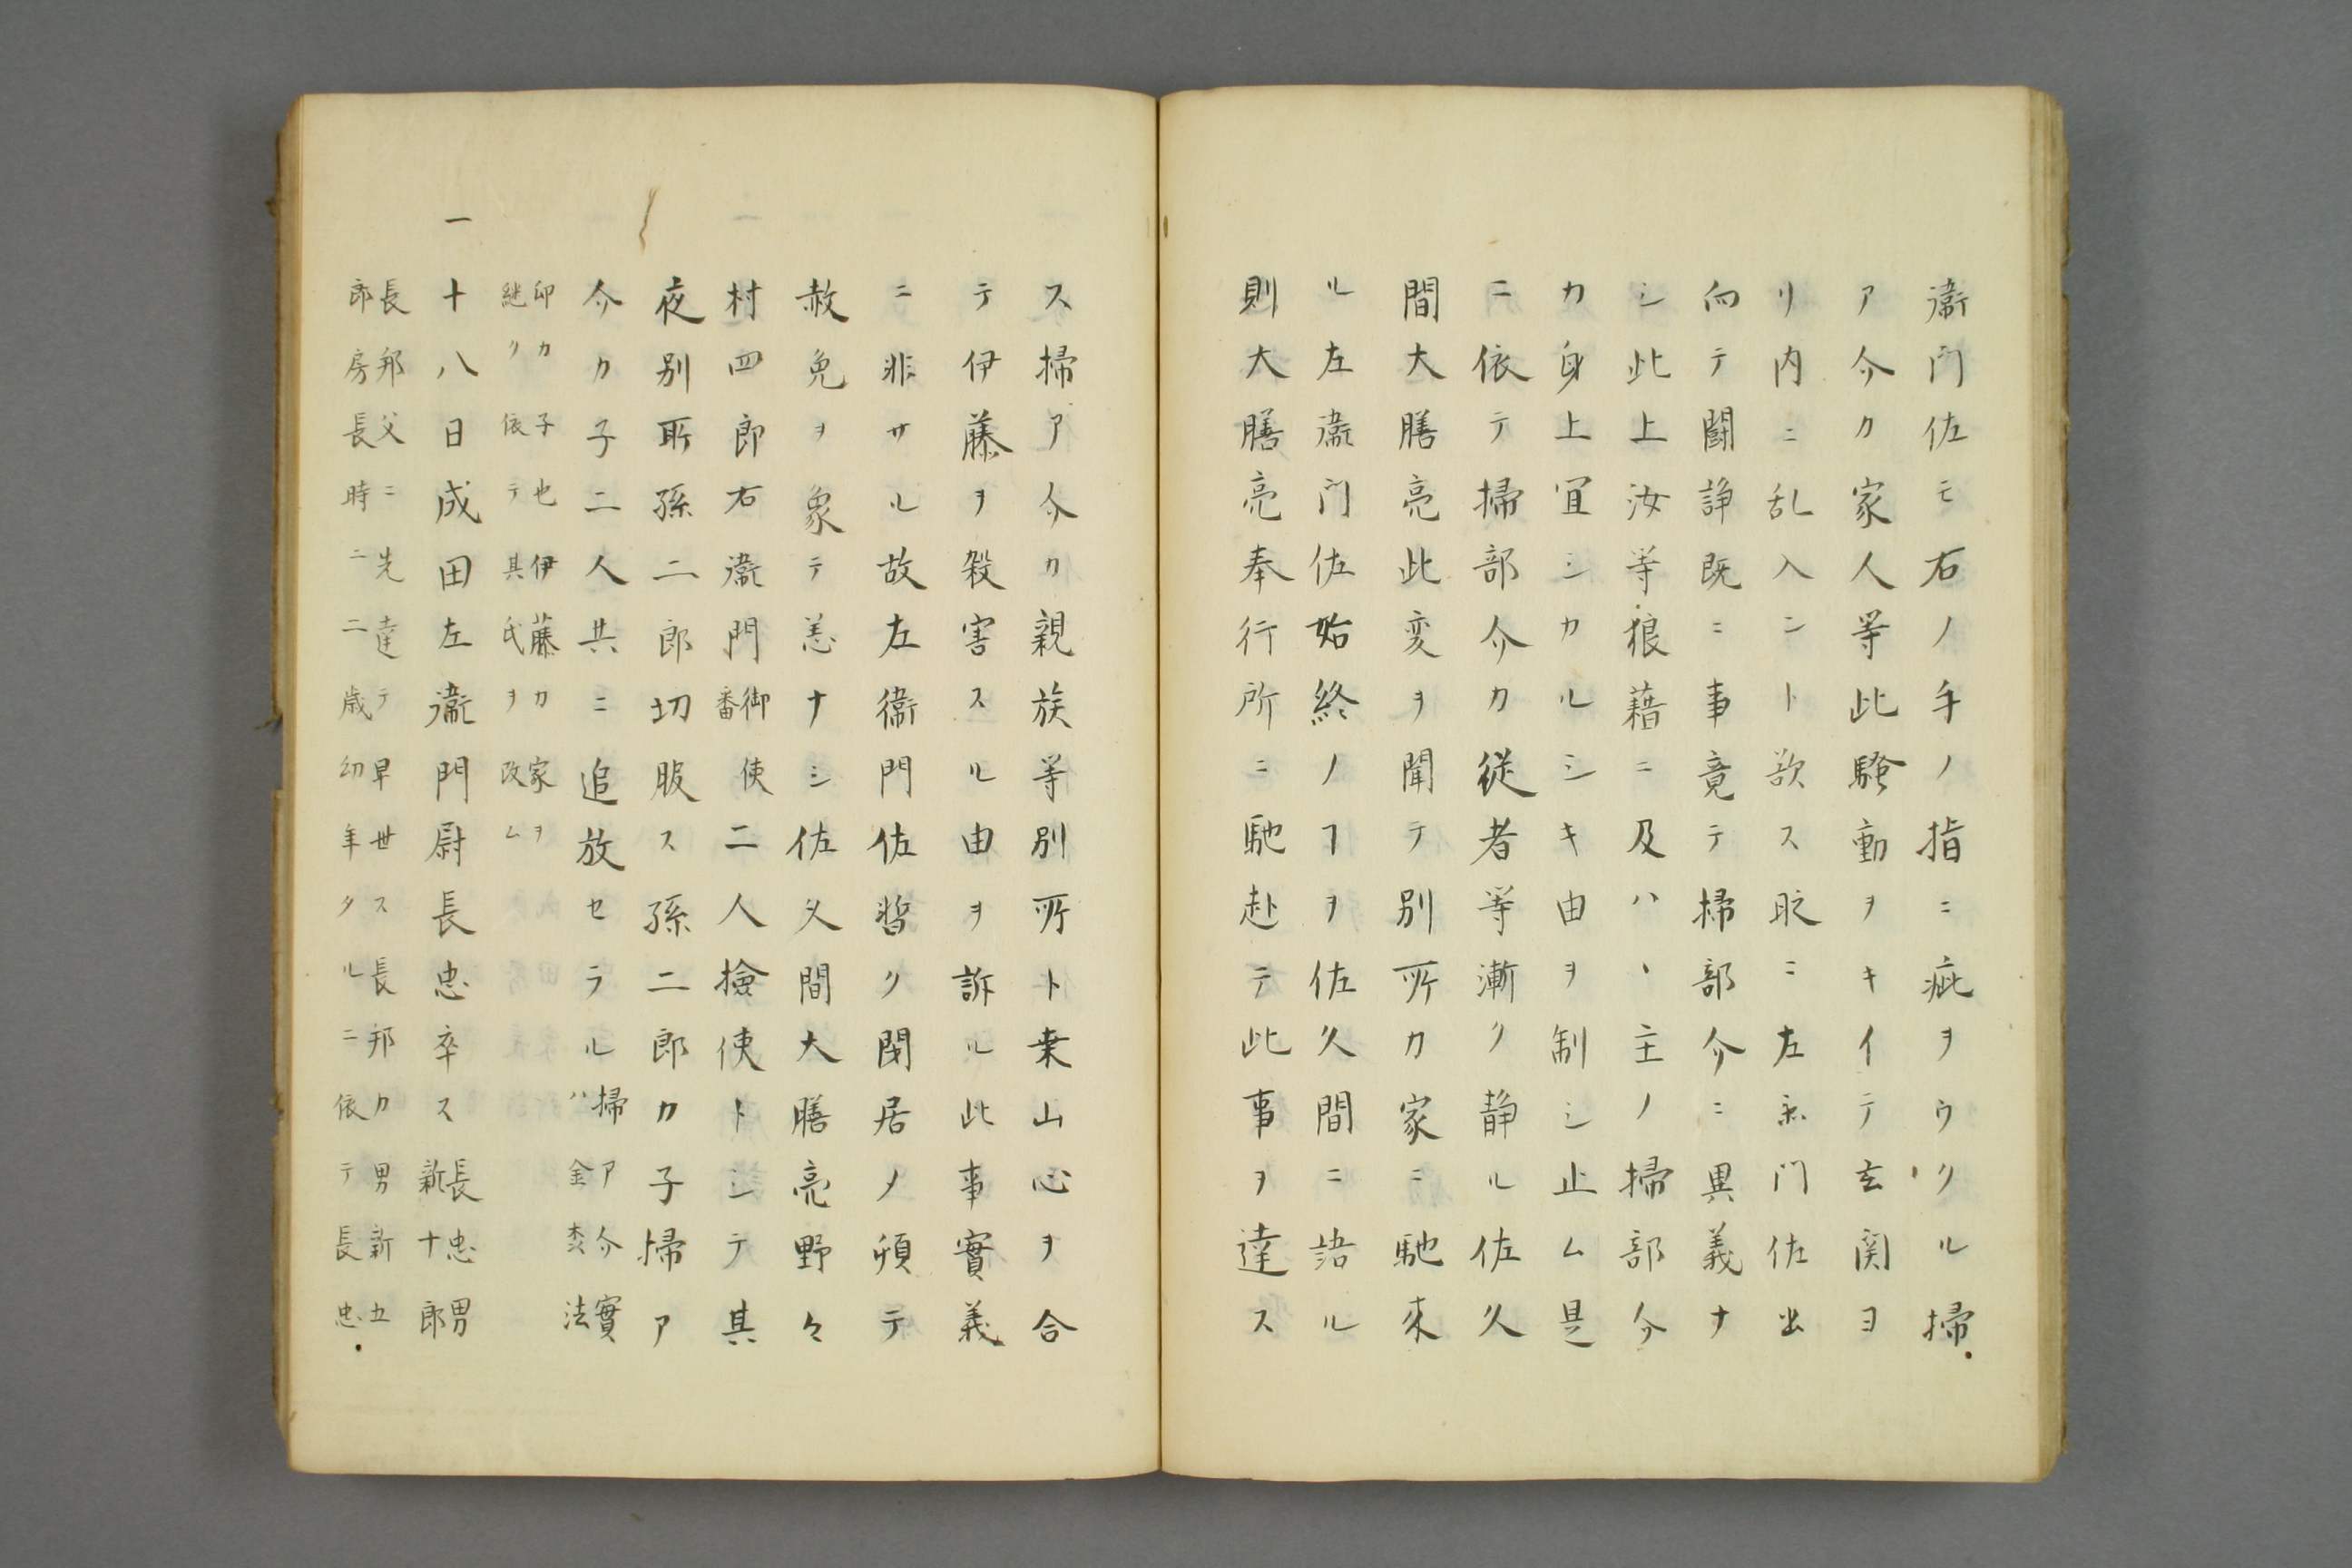 衞門佐モ右ノ手ノ指ニ疵ヲウクル掃
ア介カ家人等此騒動ヲキイテ玄関ヨ
リ内ニ乱入ント欲ス時ニ左衞門佐出
向テ闘諍既ニ事竟テ掃部介ニ異義ナ
シ此上汝等狼藉ニ及ハヽ主ノ掃部介
カ身上宜シカルシキ由ヲ制シ止ム是
ニ依テ掃部介カ従者等漸ク静ル佐久
間大膳亮此変ヲ聞テ別所カ家ニ馳来
ル左衞門佐始終ノヿヲ佐久間ニ語ル
則大膳亮奉行所ニ馳赴テ此事ヲ達ス
ス掃ア介カ親族等別所ト桒山心ヲ合
テ伊藤ヲ殺害スル由ヲ訴ル此事實義
ニ非サル故左衞門佐暫ク閉居ノ後テ
赦免ヲ象テ恙ナシ佐久間大膳亮野々
村四郎右衞門御使番二人撿使トシテ其
夜別所孫二郎切服ス孫二郎カ子掃ア
介カ子二人共ニ追放セラル掃ア介實
ハ金森法
印カ子也伊藤カ家ヲ
継リ依テ其氏ヲ改ム
一十八日成田左衞門尉長忠卒ス長忠男
新十郎
長邦父ニ先達テ早世ス長邦カ男新五
郎房長時ニ二歳幼年タルニ依テ長忠